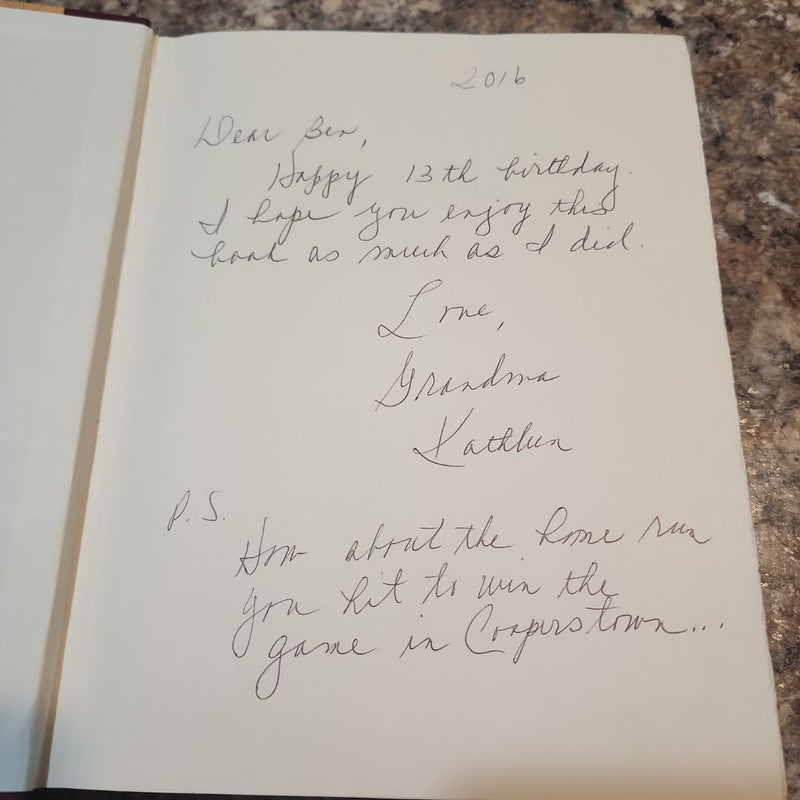 2016
Dear Ben,
Happy 13th birthday.
I hope you enjoy this
book as much as I did.
Love,
Grandma
Kathleen
P.S.
How about the home run
you hit to win the
game in Cooperstown...